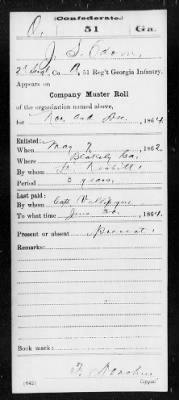 (Confederate.)
O. 51 Ga.
J. S. Odom,
2d Sergt, Co. A, 51 Reg't Georgia Infantry.
Appears on
Company Muster Roll
of the organization named above,
for Nov. and Dec., 1864.
Enlisted:
When May 9, 1862
Where Blakely Ga.
By whom
Period 3 years.
Last paid:
By whom Capt.
To what time June 30, 1864.
Present or absent Present
Remarks:
Book mark:
(642) Copyist.